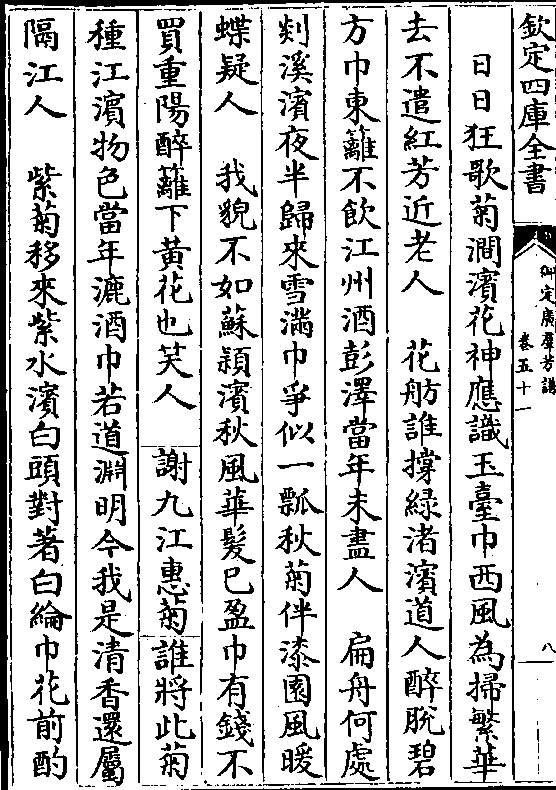 欽定四庫全書
御定廣羣芳譜
卷五十一
八
日日狂歌菊澗濱花神應識玉臺巾西風為掃繁華
去不遣紅芳近老人　花舫誰撐緑渚濱道人醉脫碧
方巾東籬不飲江州酒彭澤當年未盡人　扁舟何處
剡溪濱夜半歸來雪滿巾爭似一瓢秋菊伴漆園風暖
蝶疑人　我貌不如蘇潁濱秋風華髮已盈巾有錢不
買重陽醉籬下黄花也笑人　謝九江惠菊誰將此菊
種江濱物色當年漉酒巾若道淵明今我是清香還屬
隔江人　紫菊移來紫水濱白頭對著白綸巾花前酌